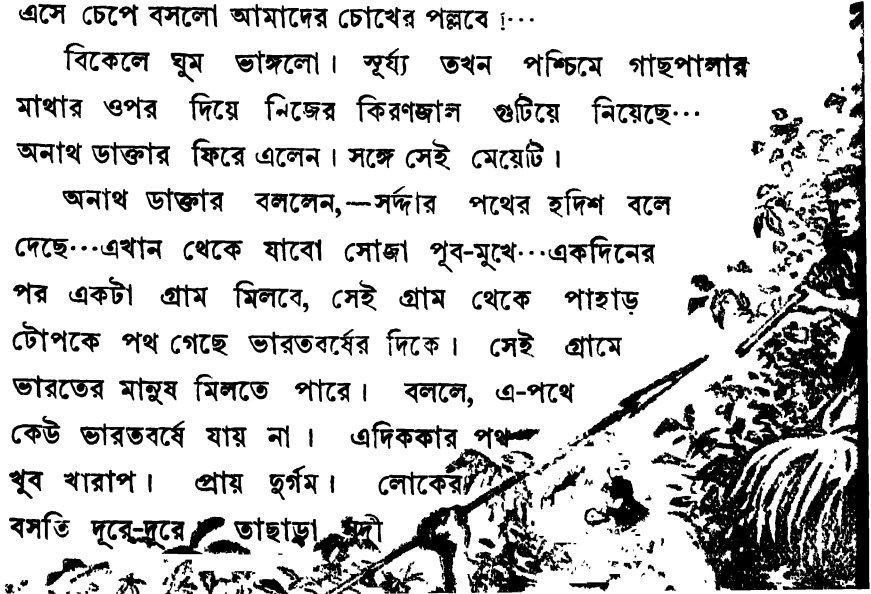 এসে চেপে বসলো আমাদের চোখের পল্লবে !···
বিকেলে ঘুম ভাঙ্গলো। সূর্য্য তখন পশ্চিমে গাছপালার
মাথার ওপর দিয়ে নিজের কিরণজাল গুটিয়ে নিয়েছে···
অনাথ ডাক্তার ফিরে এলেন। সঙ্গে সেই মেয়েটি।
অনাথ ডাক্তার বললেন,—সর্দ্দার পথের হদিশ বলে
দেছে···এখান থেকে যাবো সোজা পূব-মুখে···একদিনের
পর একটা গ্রাম মিলবে, সেই গ্রাম থেকে পাহাড়
টোপকে পথ গেছে ভারতবর্ষের দিকে। সেই গ্রামে
ভারতের মানুষ মিলতে পারে। বললে, এ-পথে
কেউ ভারতবর্ষে যায় না। এদিককার পথ
খুব খারাপ। প্রায় দুর্গম। লোকের
বসতি দূরে-দূরে তাছাড়া নদী